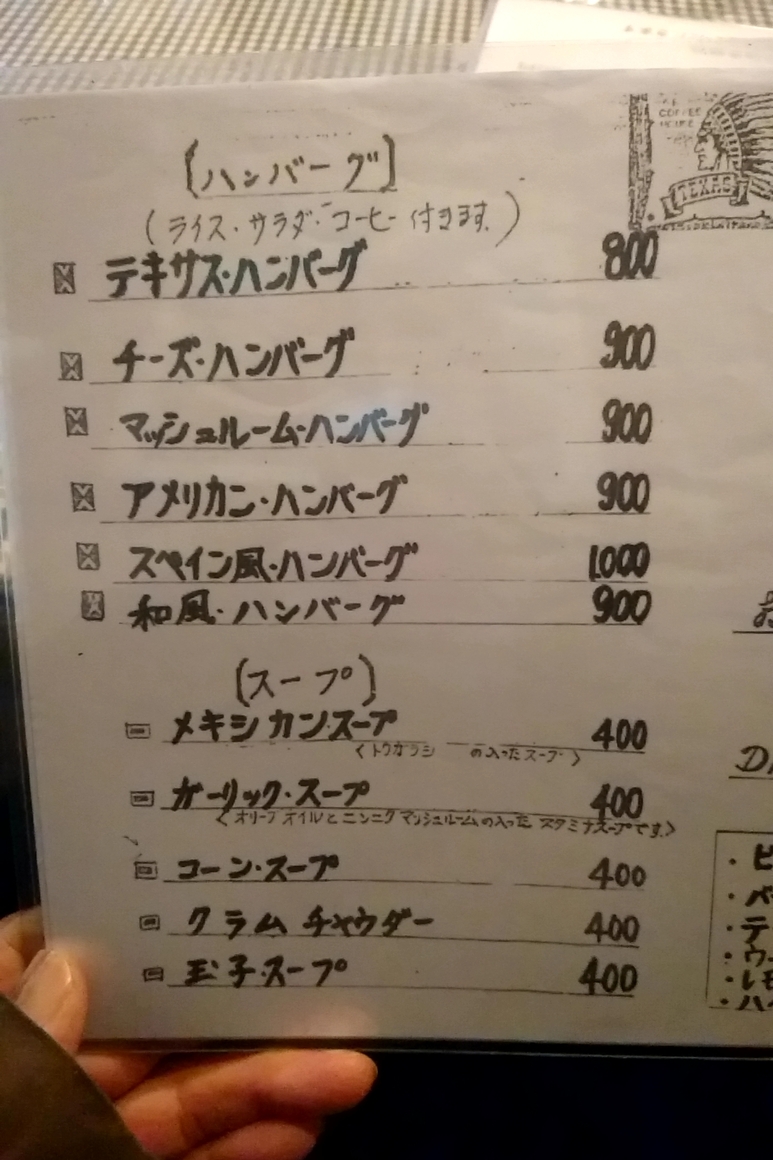 COFFEE
HOUSE
TEXAS
[ハンバーグ]
(ライス・サラダ・コーヒー付きます。)
テキサス・ハンバーグ 800
チーズ・ハンバーグ 900
マッシュルーム・ハンバーグ 900
アメリカン・ハンバーグ 900
スペイン風・ハンバーグ 1.000
和風・ハンバーグ 900
[スープ]
メキシカン・スープ 400
〈トウガラシ の入ったスープ〉
ガーリック・スープ 400
〈オリーブオイルとニンニクマッシュルームの入った スタミナスープです。〉
コーン・スープ 400
クラムチャウダー 400
玉子・スープ 400